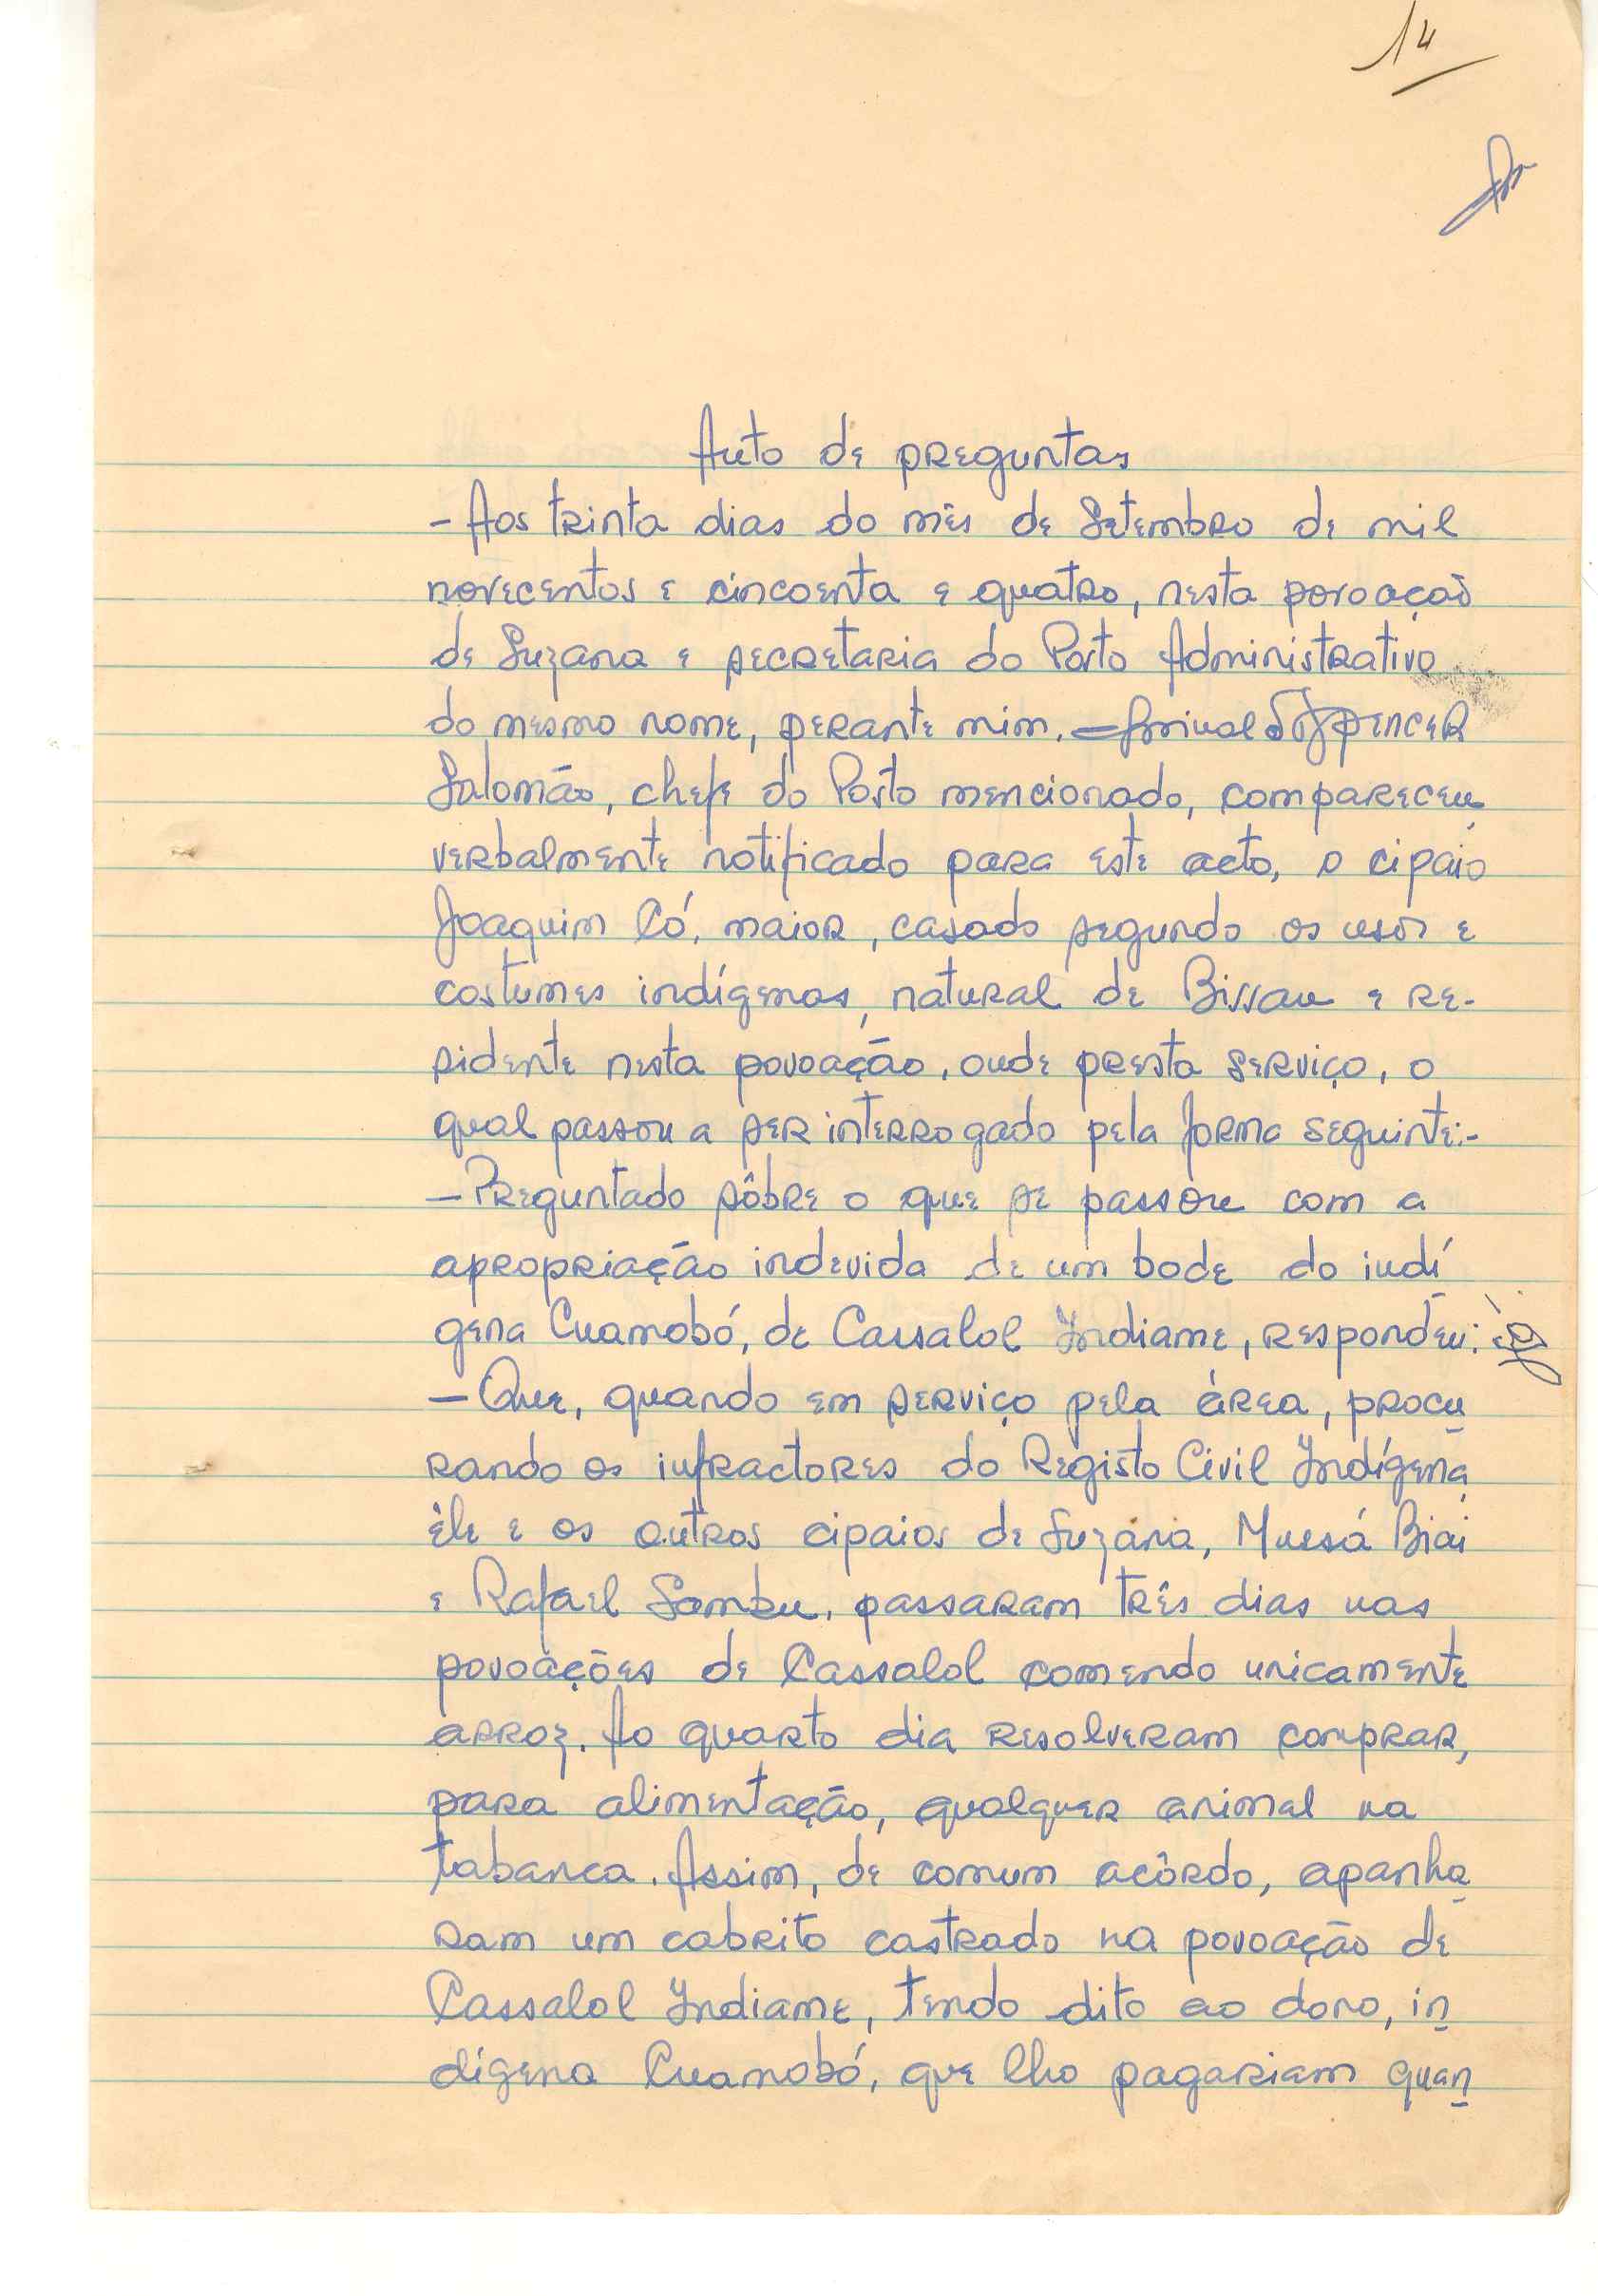 14
Auto de preguntas
- Aos trinta dias do mês de Setembro de mil
novecentos e cincoenta e quatro, nesta povoação
de Suzana e secretaria do Posto Administrativo
do mesmo nome, perante mim, Spencer
Salomão, chefe do Posto mencionado, compareceu,
verbalmente notificado para este acto, o cipaio
Joaquim Có, maior, casado segundo os usos e
costumes indígenas, natural de Bissau e re-
sidente nesta povoação, onde presta serviço, o
qual passou a ser interrogado pela forma seguinte:-
- Preguntado sôbre o que se passou com a
apropriação indevida de um bode do indí
gena Cuamobó, de Cassalol Indiame, respondeu:
- Que, quando em serviço pela área, procu
rando os infractores do Registo Civil Indígena,
êle e os outros cipaios de Suzana, Mussá Biai
e Rafael Sambu, passaram três dias nas
povoações de Cassalol comendo unicamente
arroz. Ao quarto dia resolveram comprar,
para alimentação, qualquer animal na
tabanca. Assim, de comum acôrdo, apanha
ram um cabrito castrado na povoação de
Cassalol Indiame, tendo dito ao dono, in
dígena Cuamobó, que lho pagariam quan